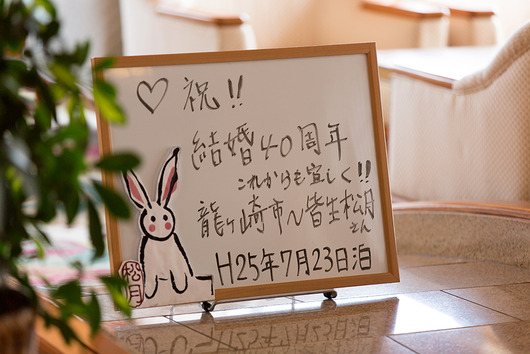 ♡祝!!
結婚40周年
これからも宜しく!!
龍ヶ崎市〜皆生松月
さん
H25年7月23日泊
松月